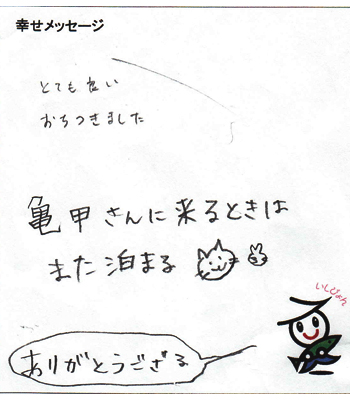 幸せメッセージ
とても良い
おちつきました
亀甲さんに来るときは
また泊まる
いしぴょん
ありがとうござる